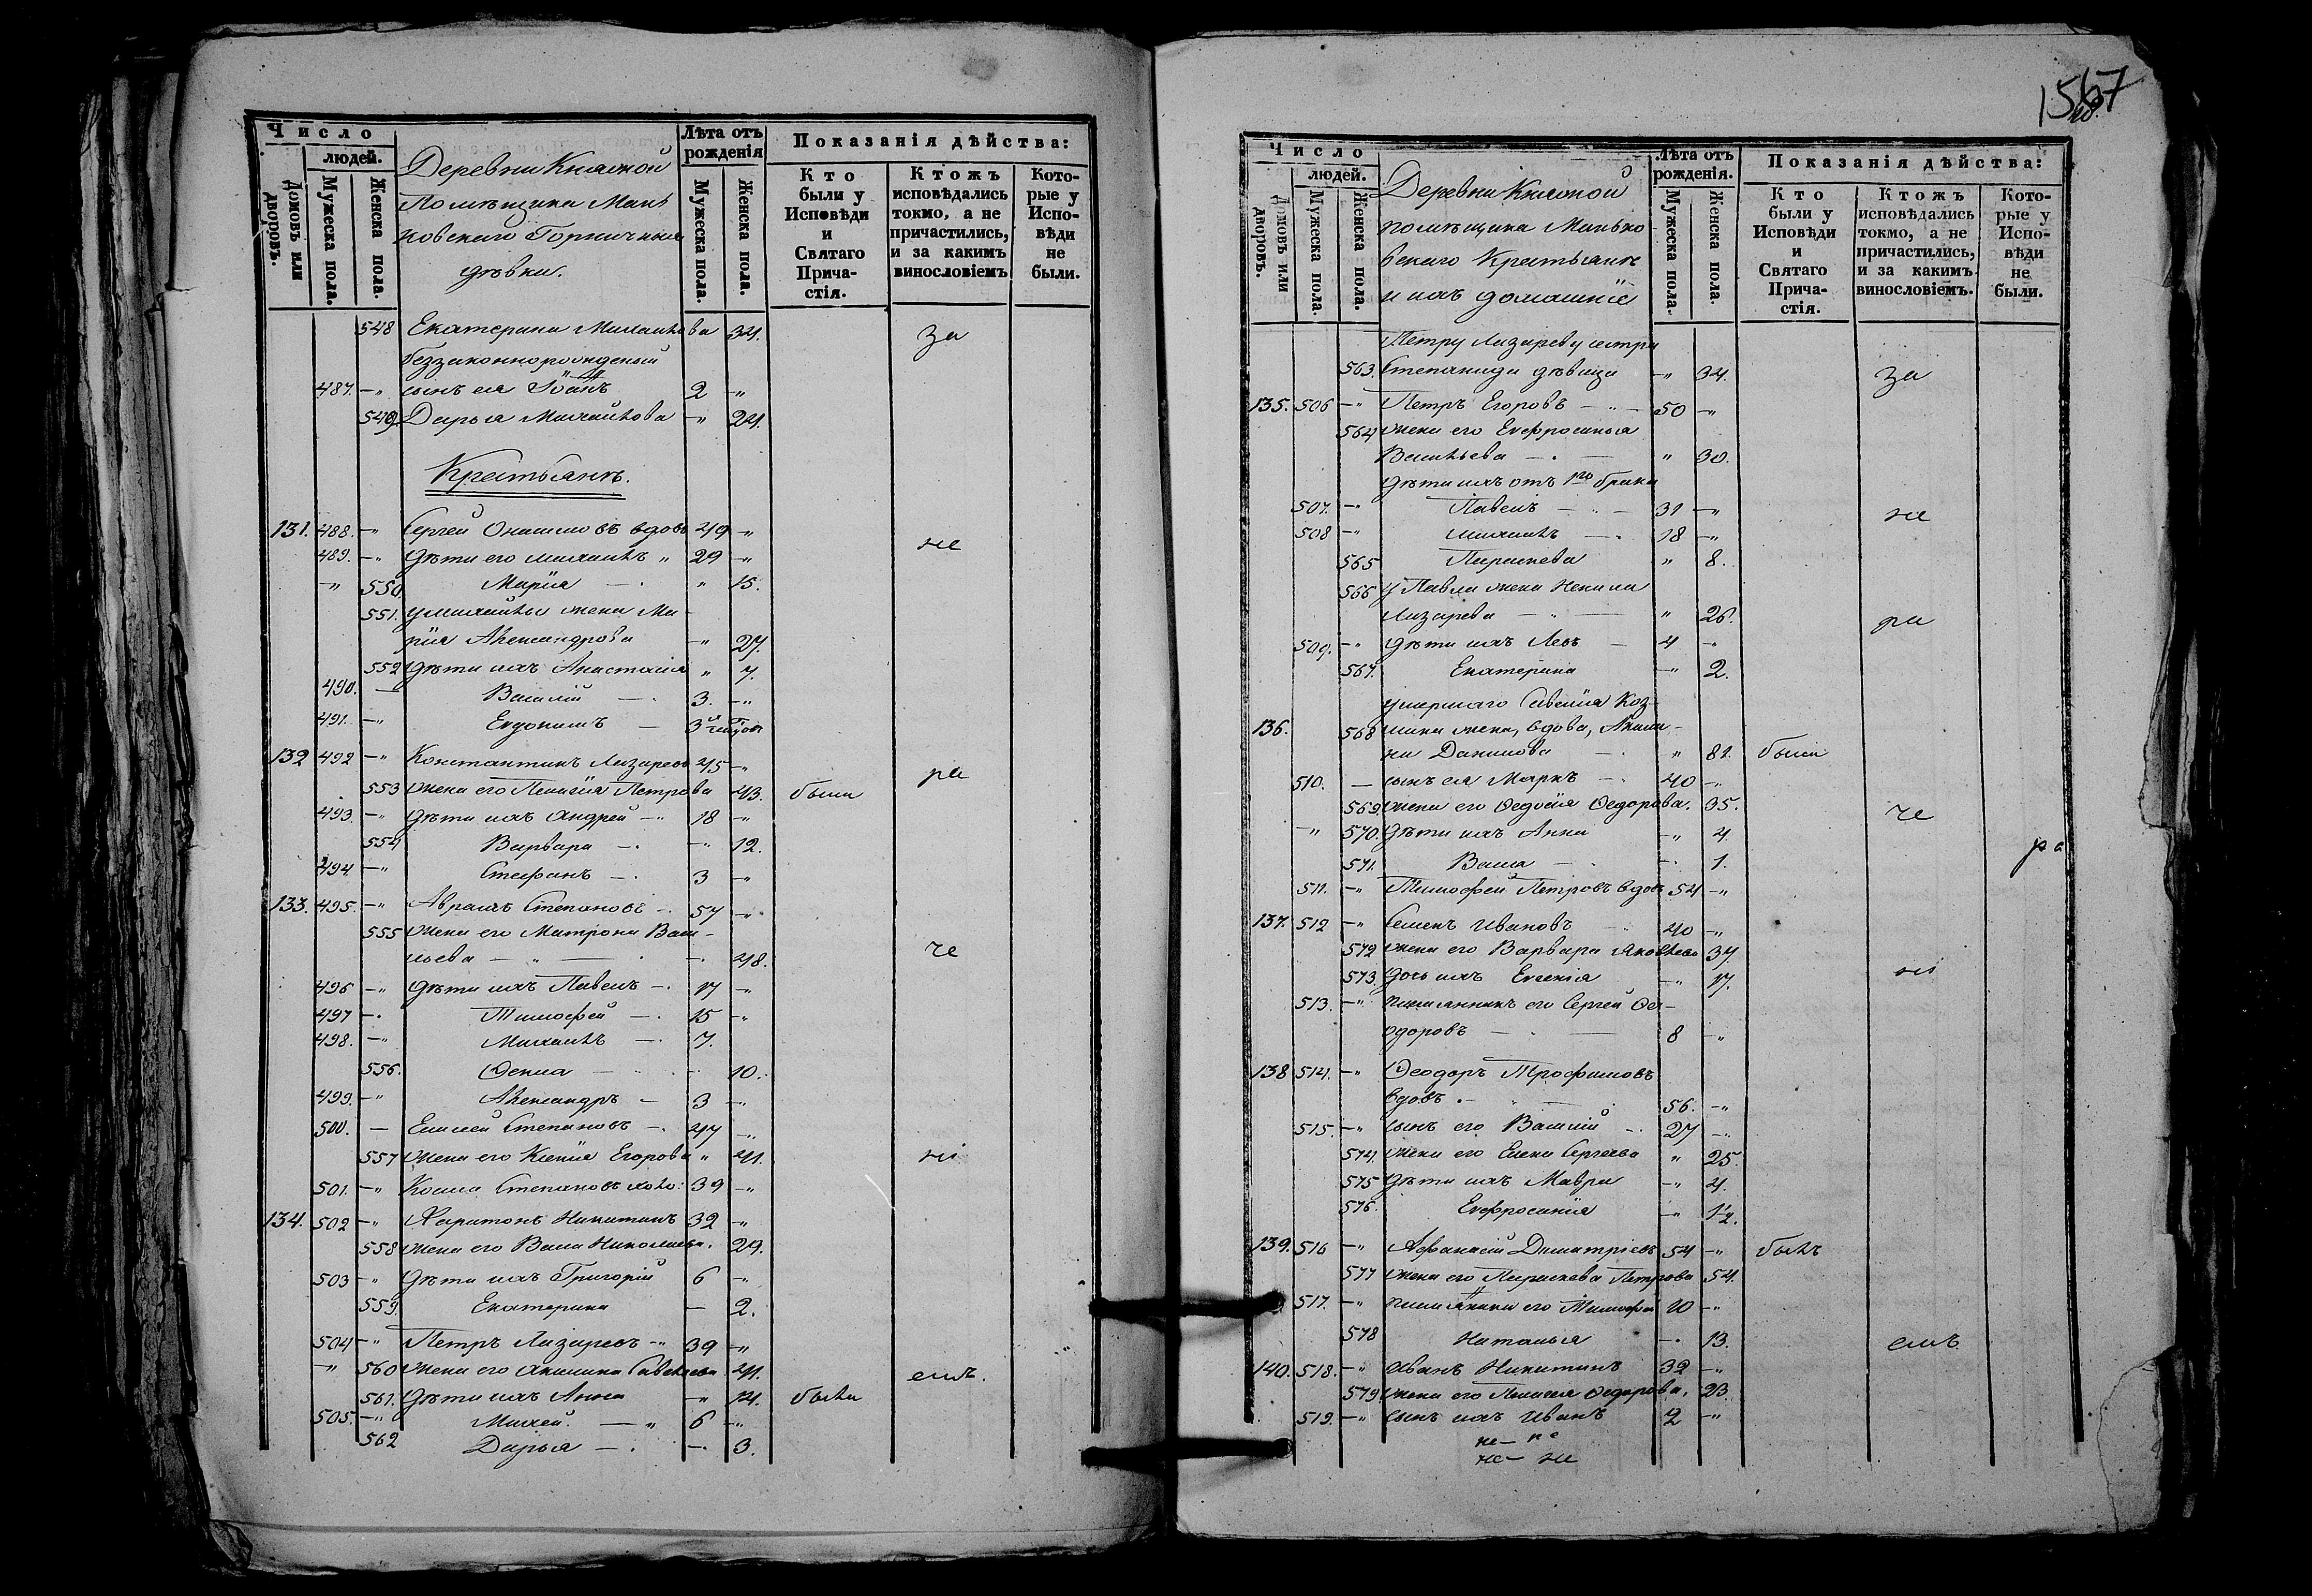 Число
людей.
Домовъ или дворовъ.
Мужеска пола.
Женска пола.
Деревни Княжой
Помѣщика Мань
ковскаго Горничныя
дѣвки.
Лѣта отъ рожденія
Мужеска пола.
Женска пола.
Показанія дѣйства:
Кто были у Исповѣди и Святаго Причастія.
Ктожъ исповѣдались токмо, а не причастились, и за какимъ винословіемъ
Которые у Исповѣди не были.
548 Екатерина Михайлова 34. за
беззаконнорожденый
487. —" сынъ ея Іоаннъ 2 —"
549. Дарья Михайлова —" 24.
Крестьянъ.
131. 488. —" Сергей Онисимовъ вдовъ 49 —"
489. —" Дѣти его Михаилъ " 29 —" не
—" 550. Марія — " 15.
551. у Михайлы жена Ма-
рія Александрова —" 27.
552 Дѣти ихъ Анастасія " 7.
490. — Василій — 3. —"
491. —" Евдокимъ — 3
132 492 —" Константинъ Лазаревъ 45 —" ра
553 Жена его Пелагія Петрова 43. были
493. —" Дѣти ихъ Андрей —" 18 —"
554 Варвара —. —" 12.
494 —" Стефанъ —. 3 —"
133. 495. —" Аврамъ Степановъ —. 57 —"
555 Жена его Матрона Васи-
льева — " — 48. че
496 —" Дѣти ихъ Павелъ —. 17 —"
497 —. Тимофей —. 15 —"
498. —" Михаилъ —. 7.
556. Ѳекла — 10.
499. —" Александръ — 3 —"
500. — Елисей Степановъ —. 47 —"
557 Жена его Ксенія Егорова " 41. ні
501. —" Косма Степановъ холо: 39 —"
134. 502 —" Харитонъ Никитинъ 32 —"
558 Жена его Васа Николаева. 29.
503 —" Дѣти ихъ Григорій 6 —"
559. Екатерина — 2.
504 —" Петръ Лазаревъ —" 39 —"
—" 560 Жена его Акилина Савельева 41. емъ.
561. Дѣти ихъ Анна —" 14. были
505. —" Михей. — " 6 —"
562 Дарья —. —. 3.
1567
Число
людей.
Домовъ или дворовъ.
Мужеска пола.
Женска пола.
Деревни Княжой
помѣщика Манько-
вскаго Крестьянъ
и ихъ домашніе
Лѣта отъ рожденія.
Мужеска пола.
Женска пола.
Показанія дѣйства:
Кто были у Исповѣди и Святаго Причастія.
Ктожъ исповѣдались токмо, а не причастились, и за какимъ винословіемъ.
Которые у Исповѣди не были.
Петру Лазареву сестра
563. Степанида дѣвица —" 34. за
135. 506 —" Петръ Егоровъ — " — 50 —"
564 Жена его Евфросинья
Васильева — . — " 30.
Дѣти ихъ отъ 1го брака
507. —" Павелъ — 31 —" не
508 —" Михаилъ —. 18 —"
565 Параскева " 8.
566 у Павла жена Некила
Лазарева — " — " 26. ра
509. —" Дѣти ихъ Левъ — 4 —"
567. Екатерина —" 2.
умершаго Савелія Коз-
136. 568 мина жена, вдова, Акили-
на Данилова — " 81. были
510. — сынъ ея Маркъ —. 40 —"
569. Жена его Ѳедосія Ѳедорова. 35. че
—" 570. Дѣти ихъ Анна —" 4.
571. Васса — —. 1. ра
511. —" Тимофей Петровъ вдовъ 54 —"
137. 512 —" Семенъ Ивановъ 40 —"
572 Жена его Варвара Яковлева 37.
573. Дочь ихъ Евгенія —" 17. ні
513. —" племянникъ его Сергей Ѳе-
одоровъ — — 8 —"
138 514. —" Ѳеодоръ Трофимовъ
вдовъ. — 56. —"
515. —" сынъ его Василій —. 27 —"
574. Жена его Елена Сергеева " 25.
575 Дѣти ихъ Мавра —" 4.
576. Евфросинія —" 1½.
139. 516 —" Афанасій Димитріевъ 54 —" былъ
577 Жена его Параскева Петрова 54.
517. —" племянники его Тимофей 20 —"
578 Наталья —. 13. емъ
140. 518. —" Иванъ Никитинъ 32 —"
579. Жена его Пелагея Ѳедорова. 23.
519. —" Сынъ ихъ Иванъ 2 —"